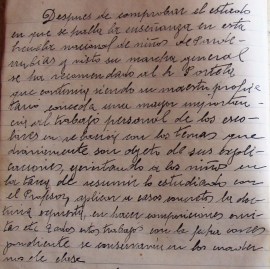 Despues de comprobar el estado
en que se halla la enseñanza en esta
Escuela nacional de niños de
y visto su marcha general
se ha recomendado al Sr.
que continúe siendo su maestro
conceda una mayor importan-
cia al trabajo personal de los esco-
lares en relacion con los temas que
diariamente son objeto de sus expli-
caciones, ejercitando a los niños en
la tarea de resumir lo estudiado con
el Profesor, aplicar a casos concretos la doc-
trina expuesta, en hacer composiciones
de todos estos trabajos con la fecha corres-
pondiente se conservarán en los cuader-
nos de clase.